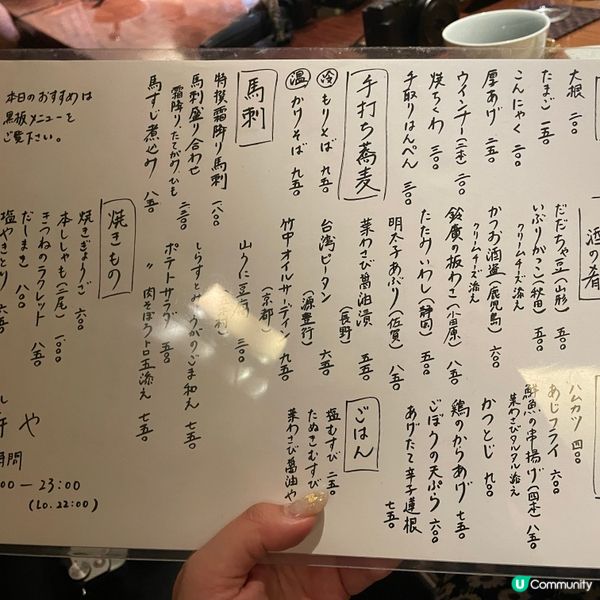 大根 二〇〇
たまご 一五〇
こんにゃく 二〇〇
厚あげ 二五〇
ウインナー(二本) 二〇〇
焼ちくわ 三〇〇
手取りはんぺん 三〇〇
手打ち蕎麦
冷 もりそば 九五〇
温 かけそば 九五〇
馬刺
特撰霜降り馬刺 一八〇〇
馬刺盛り合わせ
霜降りたてがみひも 二二〇〇
馬すじ煮込み 八五〇
本日のおすすめは
黒板メニューを
ご覧下さい。
酒の肴
だだちゃ豆(山形) 五五〇
いぶりがっこ(秋田) 五五〇
クリームチーズ添え
かつお酒盗(鹿児島) 六〇〇
クリームチーズ添え
鈴廣の板わさ(小田原) 八五〇
たたみいわし(静岡) 五五〇
明太子あぶり(佐賀) 八五〇
葉わさび醤油漬(長野) 五五〇
台湾ピータン(源豊行) 六五〇
竹中オイルサーディン(京都) 九五〇
山うに豆腐 三〇〇
しらすとみょうがのごま和え 七五〇
ポテトサラダ 五五〇
〃 肉そぼろトロ玉添え 七五〇
焼きもの
焼きぎょうざ 六〇〇
本ししゃも(二尾) 一〇〇〇
きつねのラクレット 八五〇
だしまき 八〇〇
塩やきとり 六五〇
ハムカツ 四〇〇
あじフライ 六〇〇
鮮魚の串揚げ(四本) 八五〇
葉わさびタルタル添え
かつとじ 九〇〇
鶏のからあげ 七五〇
ごぼうの天ぷら 六〇〇
あげたて辛子蓮根 七五〇
ごはん
塩むすび 二五〇
たぬきむすび
葉わさび醤油や
や
23:00
(Lo. 22:00)
U Community